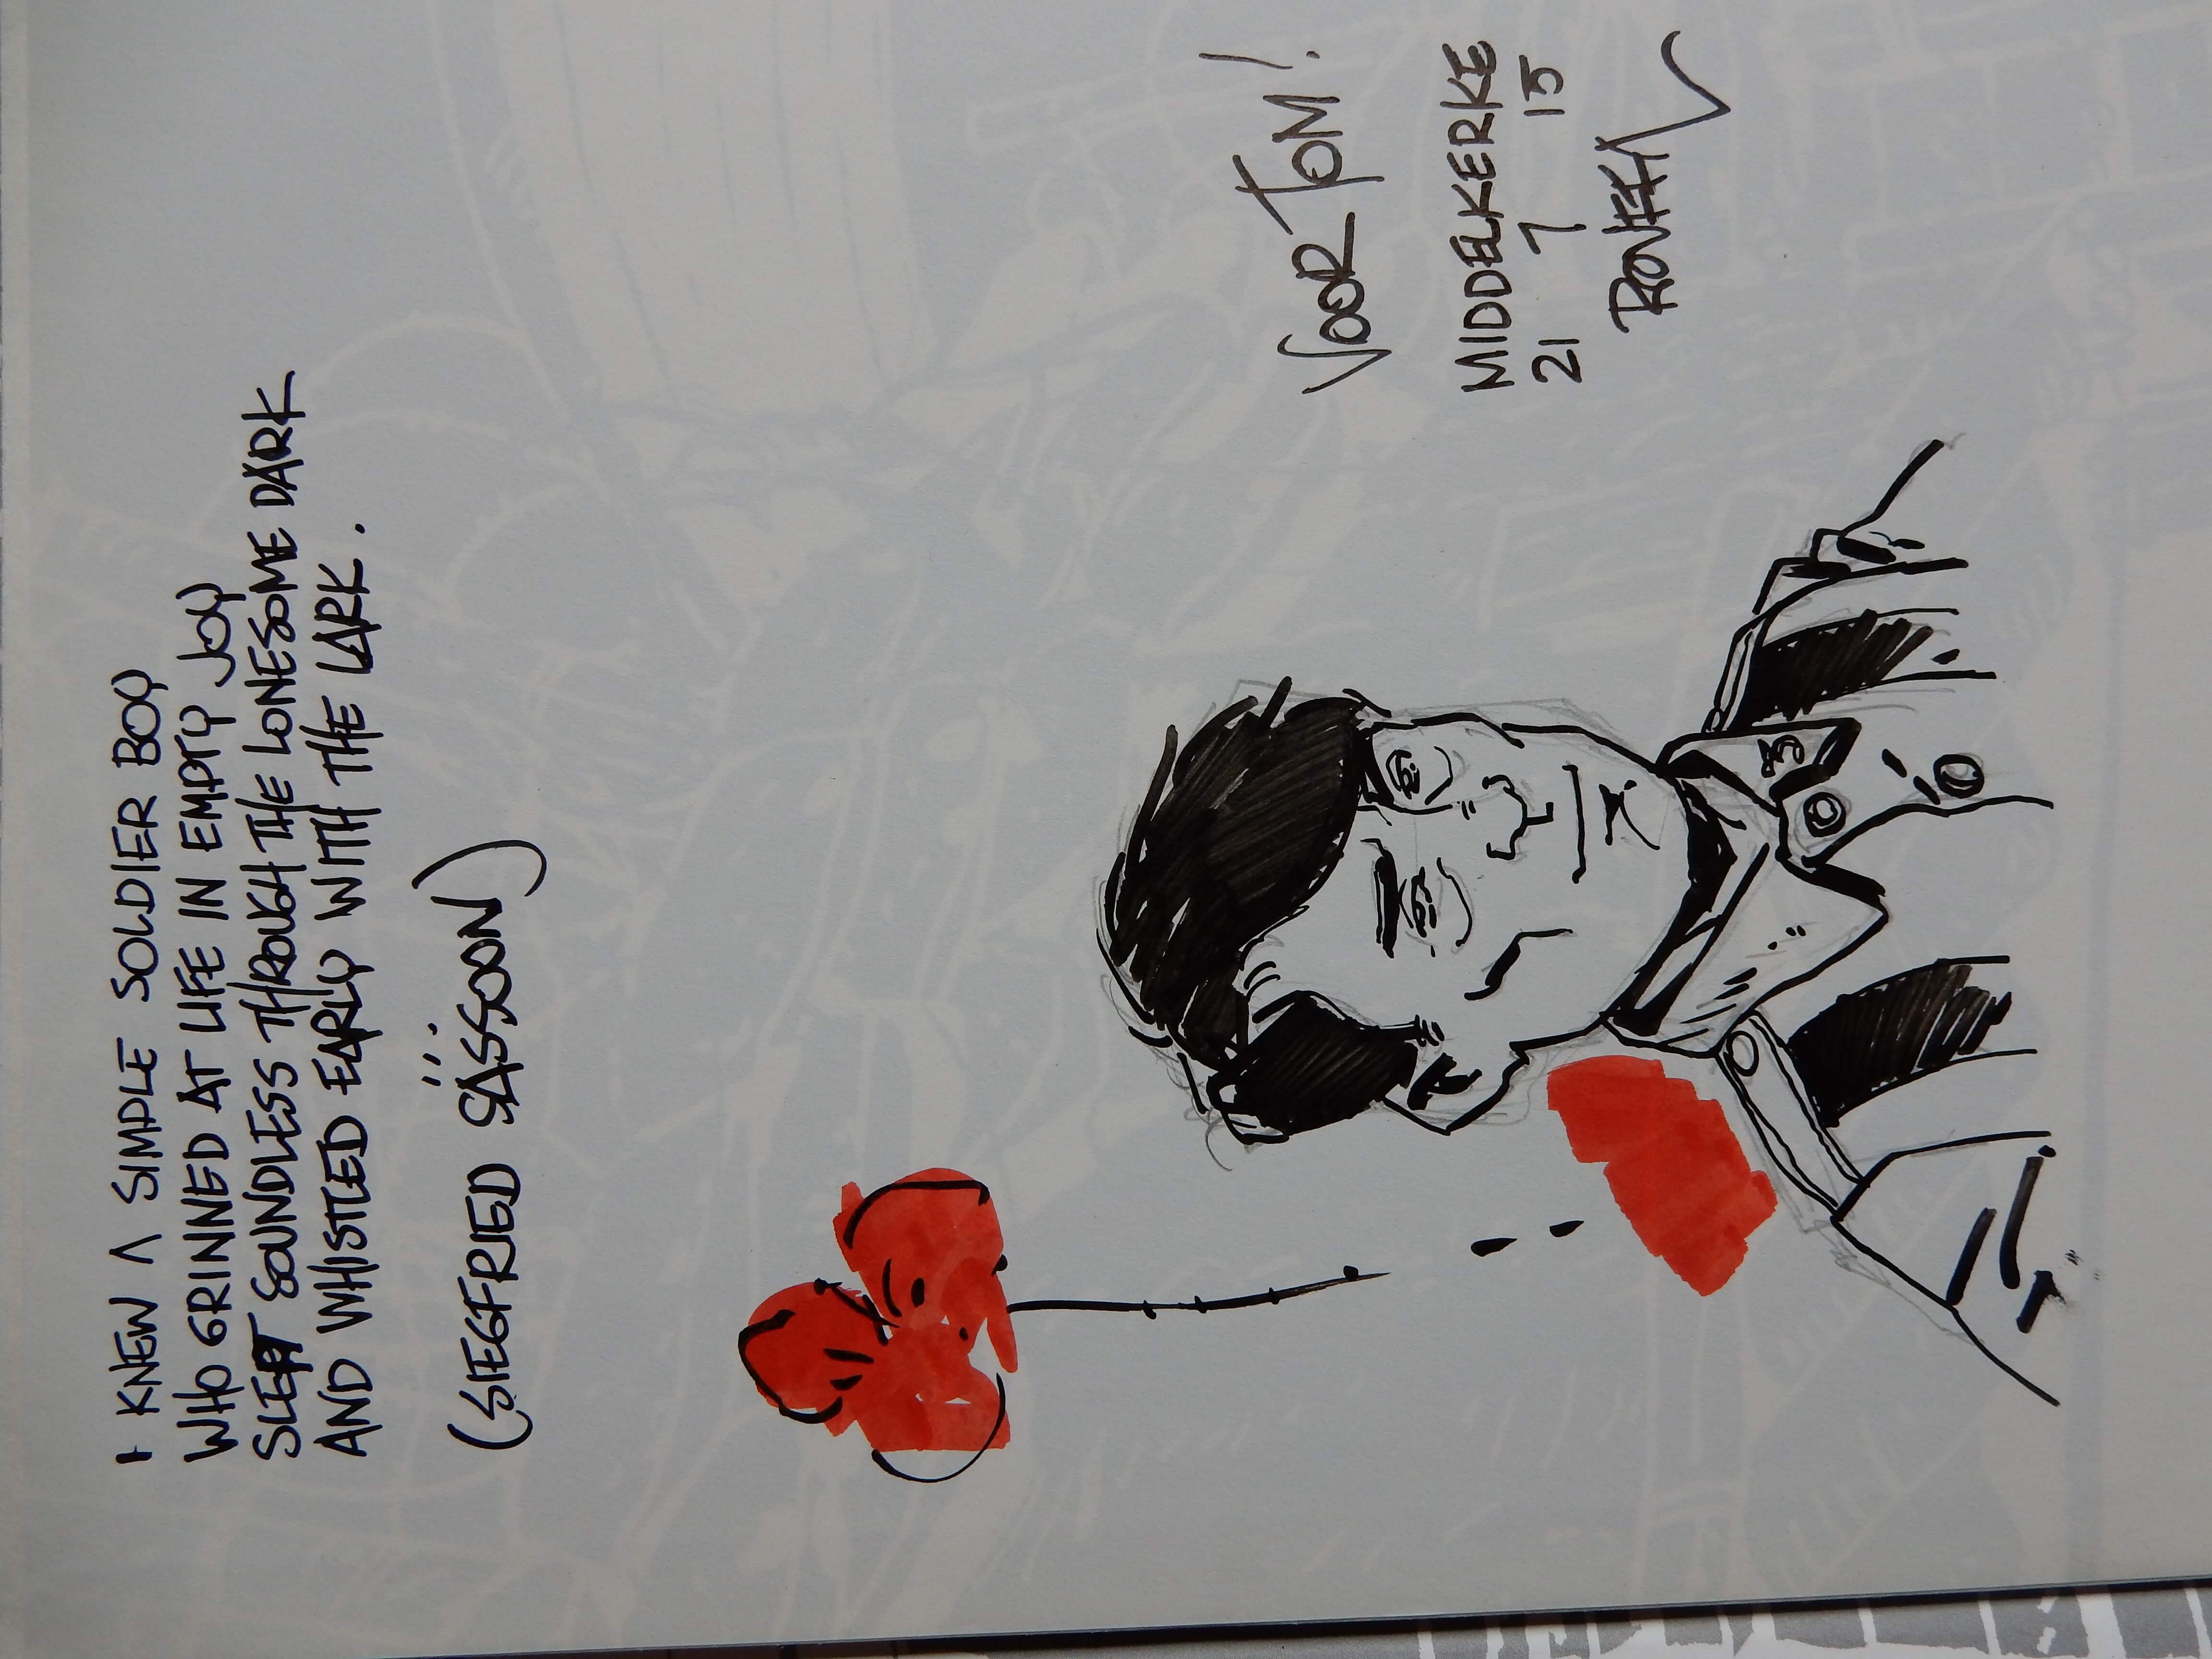 I KNEW A SIMPLE SOLDIER BOY
WHO GRINNED AT LIFE IN EMPTY JOY
SLEPT SOUNDLESS THROUGH THE LONESOME DARK
AND WHISTLED EARLY WITH THE LARK.
...
(SIEGFRIED SASSOON)
VOOR TOM!
MIDDELKERKE
21 7 15
3